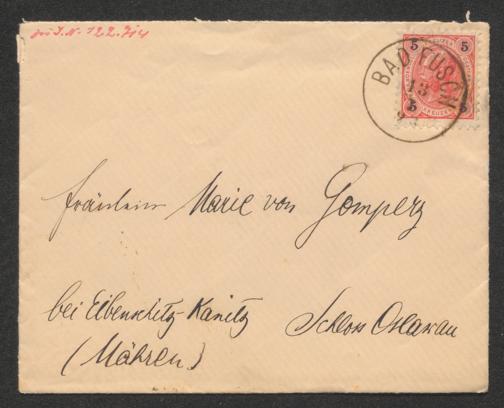 zu I.N. 122.714
BAD FUSCH
13
5 5
5 5
Fräulein Marie von Gomperz
bei Eibenschitz-Kanitz Schloss Oslawan
(Mähren)